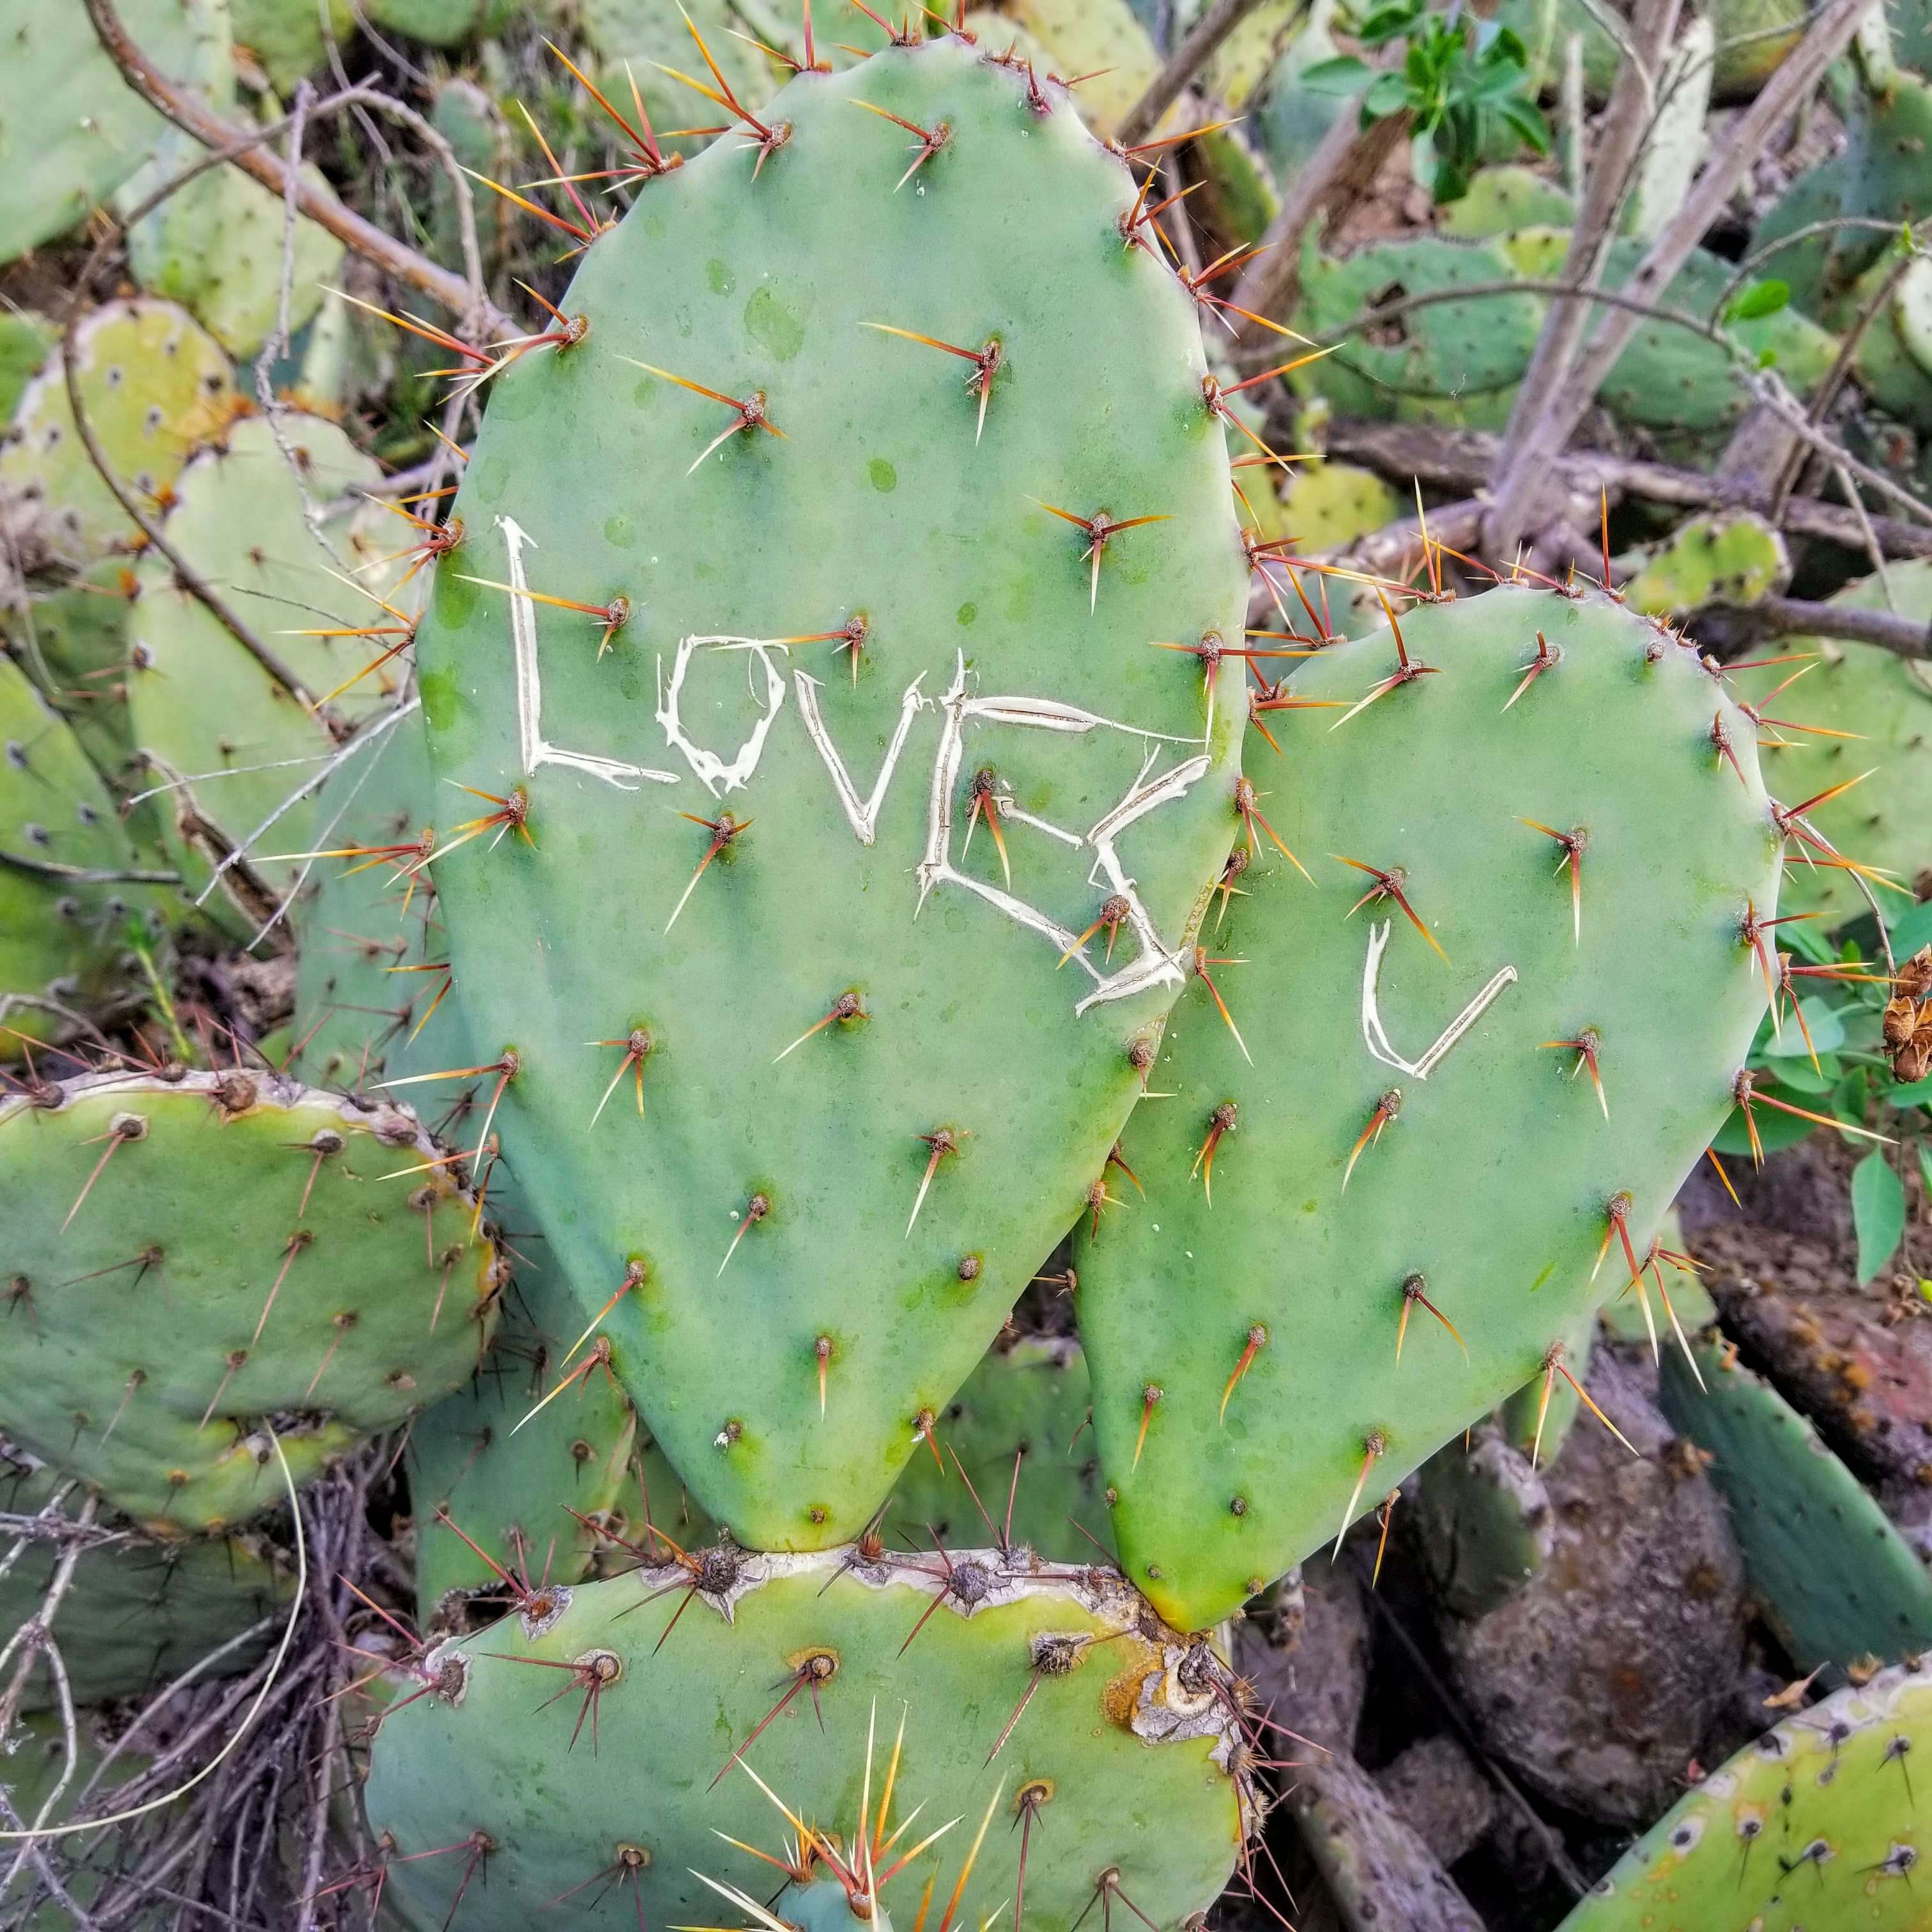 LOVE U